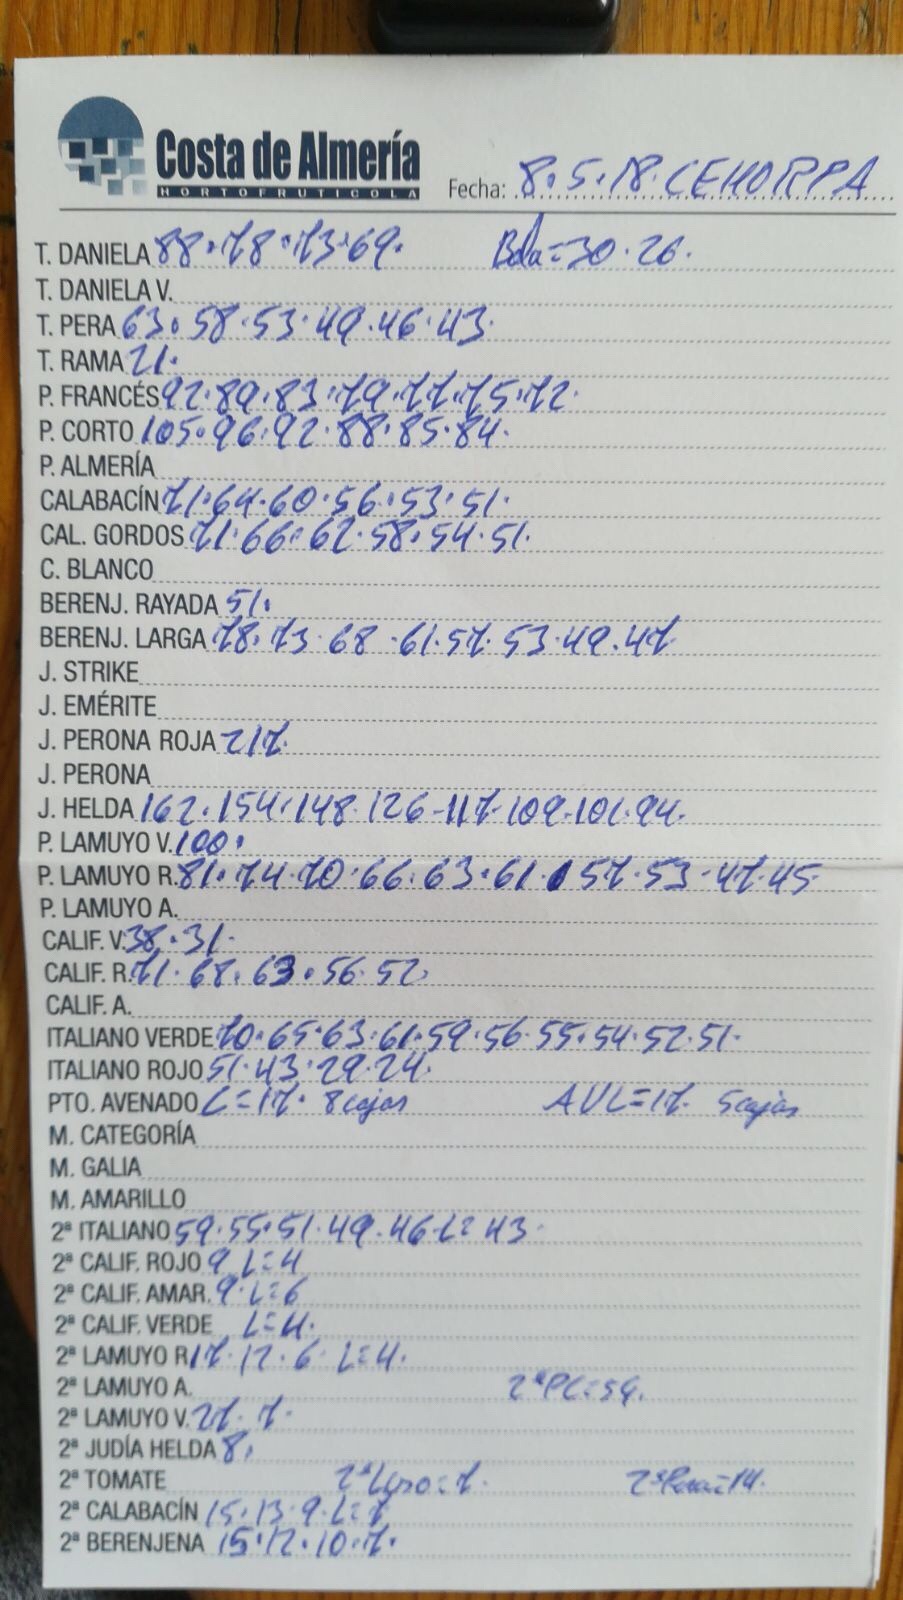 Costa de Almería
HORTOFRUTICOLA
Fecha: 8.5.18. CEHORPA
T. DANIELA 88.78.73.69. Bola=30.26.
T. DANIELA V.
T. PERA 63.58.53.49.46.43.
T. RAMA 21.
P. FRANCÉS 92.89.83.79.77.75.72.
P. CORTO 105.96.92.88.85.84.
P. ALMERÍA
CALABACÍN 71.64.60.56.53.51.
CAL. GORDOS 71.66.62.58.54.51.
C. BLANCO
BERENJ. RAYADA 51.
BERENJ. LARGA 78.73.68.61.57.53.49.47.
J. STRIKE
J. EMÉRITE
J. PERONA ROJA 217.
J. PERONA
J. HELDA 162.154.148.126-117.109.101.94.
P. LAMUYO V. 100.
P. LAMUYO R. 81.74.70.66.63.61.57.53.47.45
P. LAMUYO A.
CALIF. V. 38.31.
CALIF. R. 71.68.63.56.52.
CALIF. A.
ITALIANO VERDE 70.65.63.61.59.56.55.54.52.51.
ITALIANO ROJO 51.43.29.24.
PTO. AVENADO L=17. 8cajas AVL=17. 5cajas
M. CATEGORÍA
M. GALIA
M. AMARILLO
2ª ITALIANO 59.55.51.49.46-L=43.
2ª CALIF. ROJO 9 L=4
2ª CALIF. AMAR. 9.L=6
2ª CALIF. VERDE L=4.
2ª LAMUYO R 17.12.6.L=4.
2ª LAMUYO A. 2ªPC=59.
2ª LAMUYO V. 27.7.
2ª JUDÍA HELDA 8.
2ª TOMATE 2ªLiso=7. 2ªPera=14.
2ª CALABACÍN 15.13.9.L=7
2ª BERENJENA 15.12.10.7.